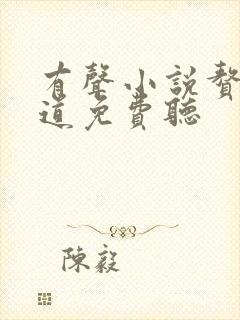 有聲小說贅
道免費聽
陳毅